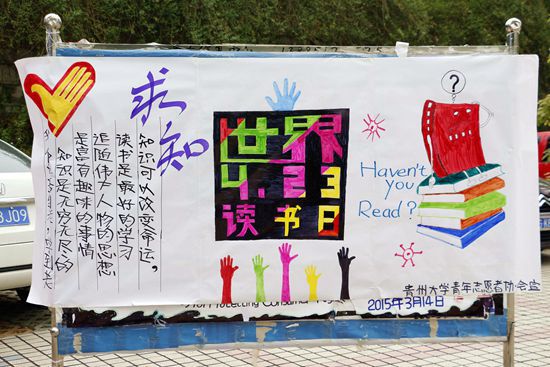 求知
知识可以改变命运，
读书是最好的学习
追随伟大人物的思想
是富有趣味的事情
知识是无穷无尽的
世界
4.23
读书日
Haven't
you
Read?
贵州大学青年志愿者协会宣
2015年3月14日
Protecting Consumer
J09